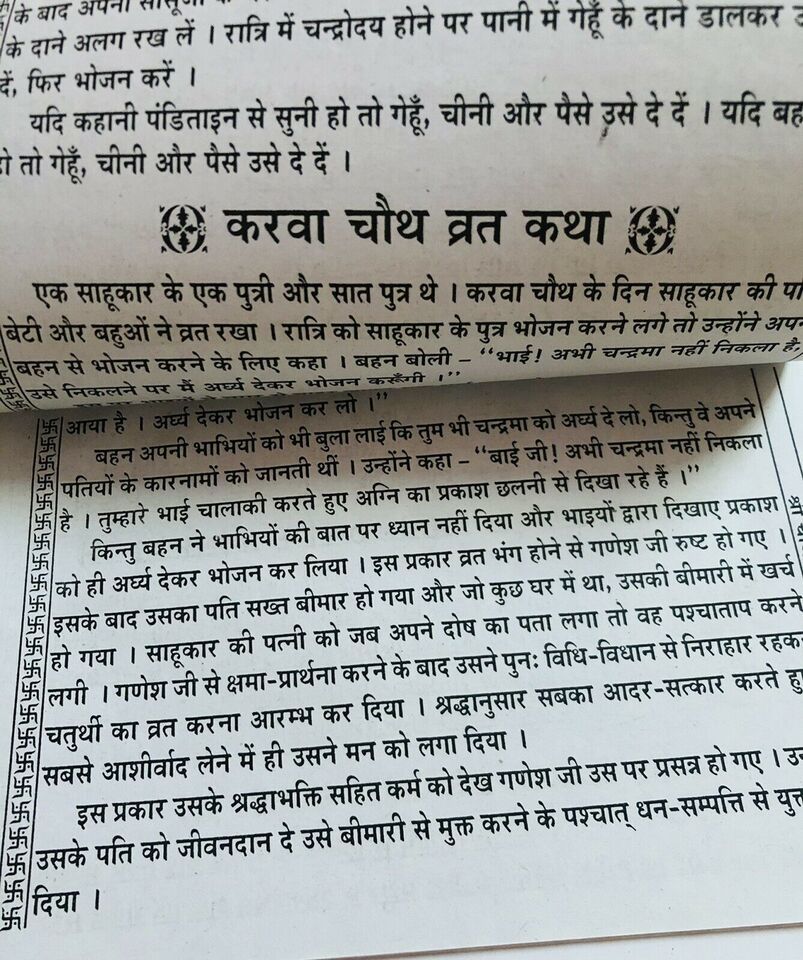 के बाद अपनी
के दाने अलग रख लें । रात्रि में चन्द्रोदय होने पर पानी में गेहूँ के दाने डालकर
दें, फिर भोजन करें ।
यदि कहानी पंडिताइन से सुनी हो तो गेहूँ, चीनी और पैसे उसे दे दें । यदि
हो तो गेहूँ, चीनी और पैसे उसे दे दें ।
करवा चौथ व्रत कथा
एक साहूकार के एक पुत्री और सात पुत्र थे । करवा चौथ के दिन साहूकार की
बेटी और बहुओं ने व्रत रखा । रात्रि को साहूकार के पुत्र भोजन करने लगे तो उन्होंने
बहन से भोजन करने के लिए कहा । बहन बोली – “भाई! अभी चन्द्रमा नहीं निकला है,
उसे निकलने पर मैं अर्घ्य देकर भोजन करूँगी ।”
आया है । अर्घ्य देकर भोजन कर लो ।”
बहन अपनी भाभियों को भी बुला लाई कि तुम भी चन्द्रमा को अर्घ्य दे लो, किन्तु वे अपने
पतियों के कारनामों को जानती थीं । उन्होंने कहा – “बाई जी! अभी चन्द्रमा नहीं निकला
है । तुम्हारे भाई चालाकी करते हुए अग्नि का प्रकाश छलनी से दिखा रहे हैं ।”
किन्तु बहन ने भाभियों की बात पर ध्यान नहीं दिया और भाइयों द्वारा दिखाए प्रकाश
को ही अर्घ्य देकर भोजन कर लिया । इस प्रकार व्रत भंग होने से गणेश जी रुष्ट हो गए ।
इसके बाद उसका पति सख्त बीमार हो गया और जो कुछ घर में था, उसकी बीमारी में खर्च
हो गया । साहूकार की पत्नी को जब अपने दोष का पता लगा तो वह पश्चाताप करने
लगी । गणेश जी से क्षमा-प्रार्थना करने के बाद उसने पुनः विधि-विधान से निराहार रहक
चतुर्थी का व्रत करना आरम्भ कर दिया । श्रद्धानुसार सबका आदर-सत्कार करते
सबसे आशीर्वाद लेने में ही उसने मन को लगा दिया ।
इस प्रकार उसके श्रद्धाभक्ति सहित कर्म को देख गणेश जी उस पर प्रसन्न हो गए ।
उसके पति को जीवनदान दे उसे बीमारी से मुक्त करने के पश्चात् धन-सम्पत्ति से
दिया ।